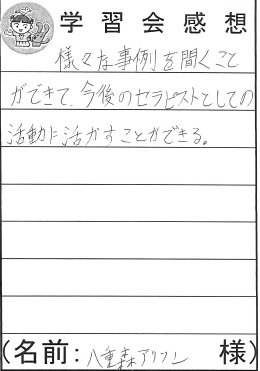 学習会感想
様々な事例を聞くこと
ができて、今後のセラピストとしての
活動に活かすことができる。
(名前:八重森アリフン 様)